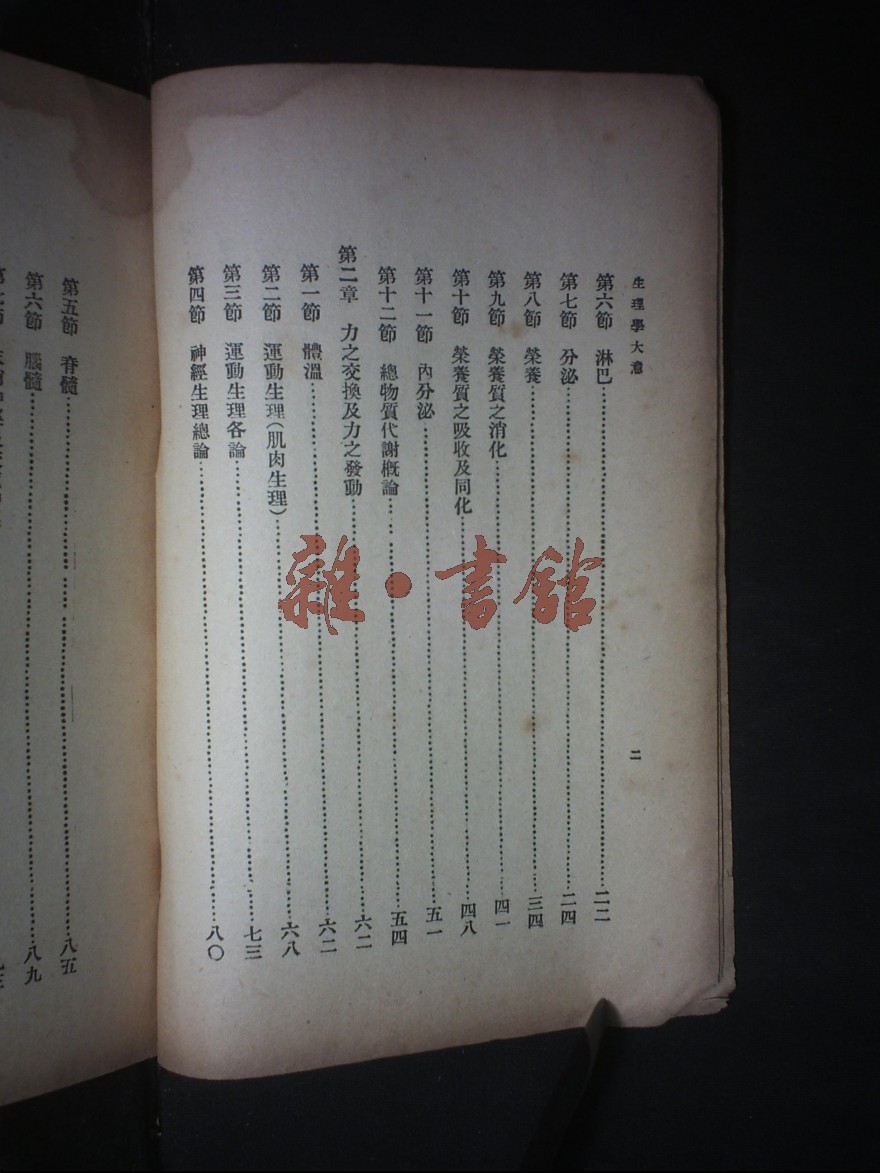 生理學大意
二
第六節 淋巴……二二
第七節 分泌……二四
第八節 榮養……三四
第九節 榮養質之消化……四一
第十節 榮養質之吸收及同化……四八
第十一節 內分泌……五一
第十二節 總物質代謝概論……五四
第二章 力之交換及力之發動……六二
第一節 體溫……六二
第二節 運動生理(肌肉生理)……六八
第三節 運動生理各論……七三
第四節 神經生理總論……八〇
第五節 脊髓……八五
第六節 腦髓……八九
雜·書館